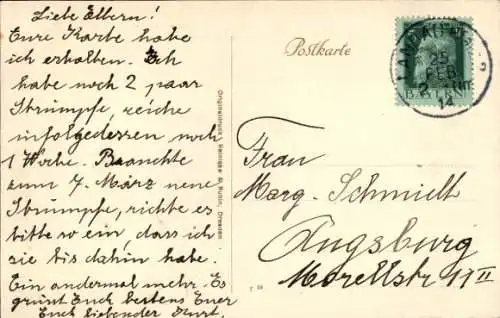 Liebe Eltern!
Eure Karte habe
ich erhalten. Ich
habe noch 2 paar
Strümpfe, reiche
infolgedessen noch
1 Woche. Brauchte
zum 7. März neue
Strümpfe, richte es
bitte so ein, dass ich
sie bis dahin habe.
Ein andermal mehr. Es
grüsst Euch bestens Euer
Euch liebender Kurt.
Originaldruck Reinicke & Rubin, Dresden
Postkarte
25
FEB
14
BAYERN
Frau
Marg. Schmidt
Augsburg
Morellstr. 11 II